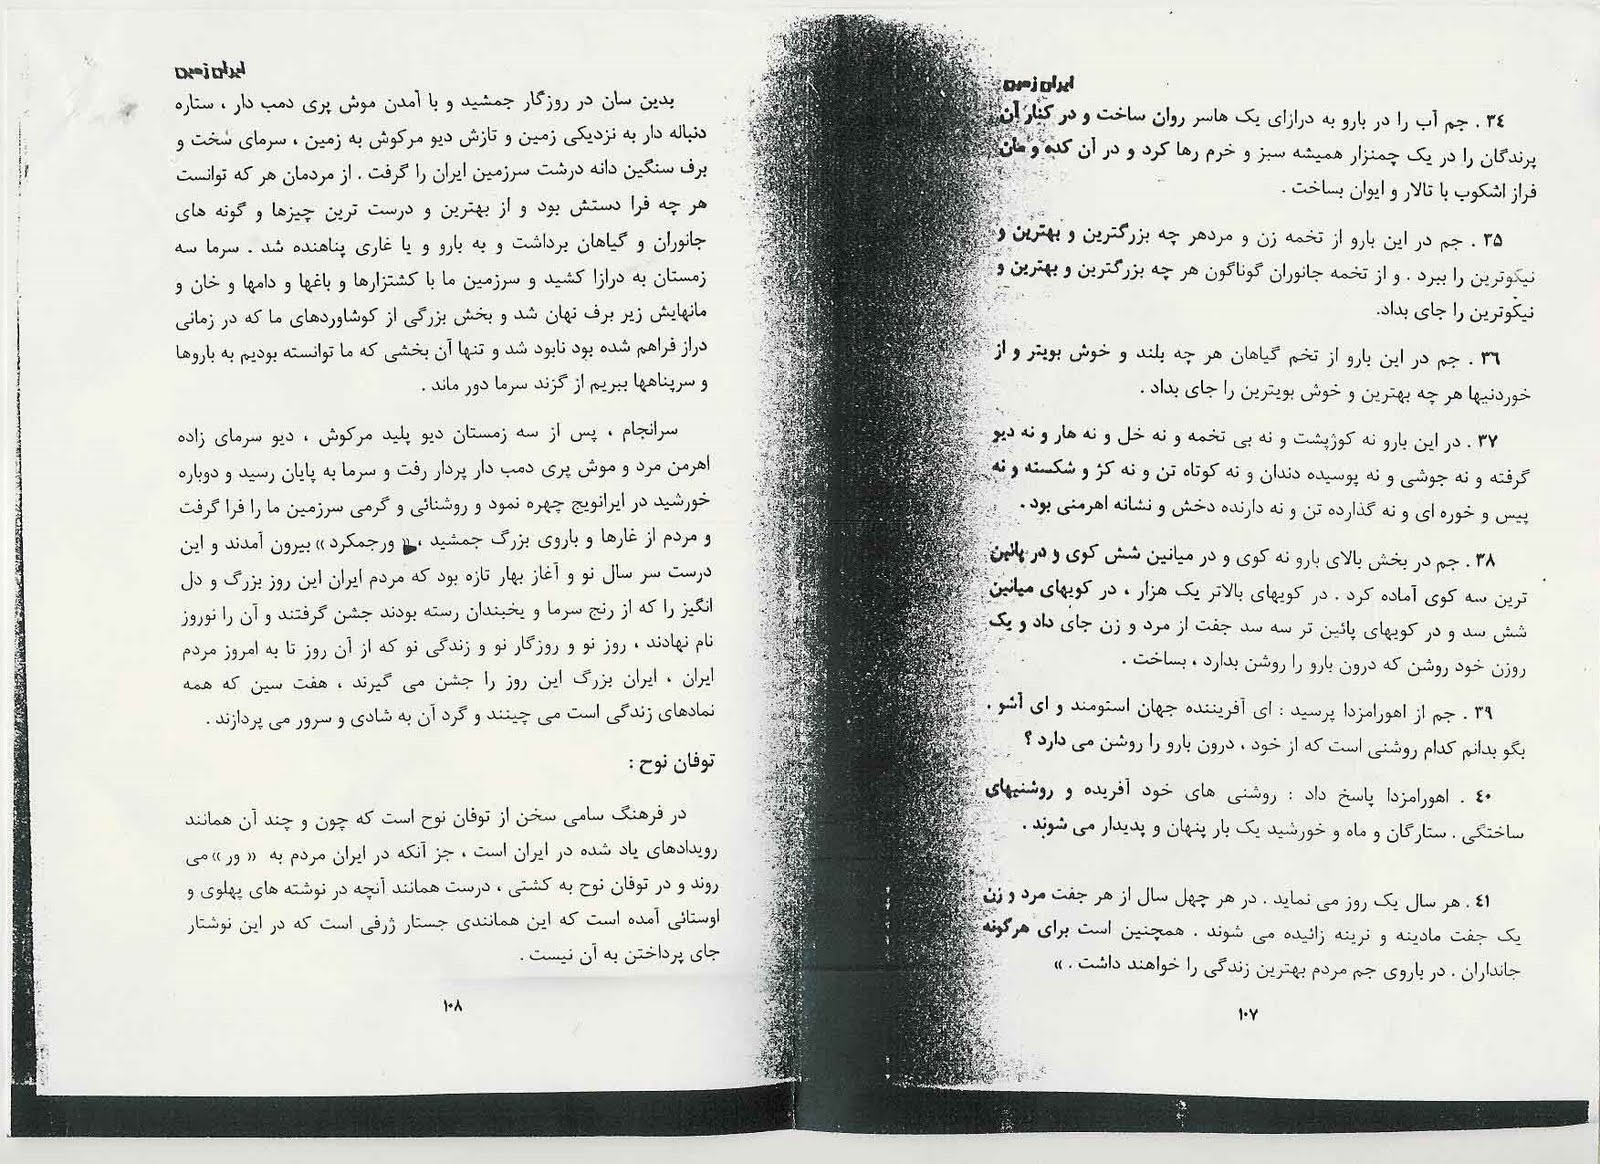 ایران زمین
۳۴ . جم آب را در بارو به درازای یک هاسر روان ساخت و در کنار آن
پرندگان را در یک چمنزار همیشه سبز و خرم رها کرد و در آن کده و مان
فراز اشکوب با تالار و ایوان بساخت .
۳۵ . جم در این بارو از تخمه زن و مردهر چه بزرگترین و بهترین و
نیکوترین را ببرد . و از تخمه جانوران گوناگون هر چه بزرگترین و بهترین و
نیکوترین را جای بداد.
۳۶ . جم در این بارو از تخم گیاهان هر چه بلند و خوش بویتر و از
خوردنیها هر چه بهترین و خوش بویترین را جای بداد .
۳۷ . در این بارو نه کوژپشت و نه بی تخمه و نه خل و نه هار و نه دیو
گرفته و نه جوشی و نه پوسیده دندان و نه کوتاه تن و نه کژ و شکسته و نه
پیس و خوره ای و نه گذارده تن و نه دارنده دخش و نشانه اهرمنی بود .
۳۸ . جم در بخش بالای بارو نه کوی و در میانین شش کوی و در پائین
ترین سه کوی آماده کرد . در کویهای بالاتر یک هزار ، در کویهای میانین
شش سد و در کویهای پائین تر سه سد جفت از مرد و زن جای داد و یک
روزن خود روشن که درون بارو را روشن بدارد ، بساخت .
۳۹ . جم از اهورامزدا پرسید : ای آفریننده جهان استومند و ای آشو .
بگو بدانم کدام روشنی است که از خود ، درون بارو را روشن می دارد ؟
۴۰ . اهورامزدا پاسخ داد : روشنی های خود آفریده و روشنیهای
ساختگی . ستارگان و ماه و خورشید یک بار پنهان و پدیدار می شوند .
۴۱ . هر سال یک روز می نماید . در هر چهل سال از هر جفت مرد و زن
یک جفت مادینه و نرینه زائیده می شوند . همچنین است برای هرگونه
جانداران . در باروی جم مردم بهترین زندگی را خواهند داشت . »
۱۰۷
ایران زمین
بدین سان در روزگار جمشید و با آمدن موش پری دمب دار ، ستاره
دنباله دار به نزدیکی زمین و تازش دیو مرکوش به زمین ، سرمای سخت و
برف سنگین دانه درشت سرزمین ایران را گرفت . از مردمان هر که توانست
هر چه فرا دستش بود و از بهترین و درست ترین چیزها و گونه های
جانوران و گیاهان برداشت و به بارو و یا غاری پناهنده شد . سرما سه
زمستان به درازا کشید و سرزمین ما با کشتزارها و باغها و دامها و خان و
مانهایش زیر برف نهان شد و بخش بزرگی از کوشاوردهای ما که در زمانی
دراز فراهم شده بود نابود شد و تنها آن بخشی که ما توانسته بودیم به باروها
و سرپناهها ببریم از گزند سرما دور ماند .
سرانجام ، پس از سه زمستان دیو پلید مرکوش ، دیو سرمای زاده
اهرمن مرد و موش پری دمب دار پردار رفت و سرما به پایان رسید و دوباره
خورشید در ایرانویج چهره نمود و روشنائی و گرمی سرزمین ما را فرا گرفت
و مردم از غارها و باروی بزرگ جمشید ، « ورجمکرد » بیرون آمدند و این
درست سر سال نو و آغاز بهار تازه بود که مردم ایران این روز بزرگ و دل
انگیز را که از رنج سرما و یخبندان رسته بودند جشن گرفتند و آن را نوروز
نام نهادند ، روز نو و روزگار نو و زندگی نو که از آن روز تا به امروز مردم
ایران ، ایران بزرگ این روز را جشن می گیرند ، هفت سین که همه
نمادهای زندگی است می چینند و گرد آن به شادی و سرور می پردازند .
توفان نوح :
در فرهنگ سامی سخن از توفان نوح است که چون و چند آن همانند
رویدادهای یاد شده در ایران است ، جز آنکه در ایران مردم به « ور » می
روند و در توفان نوح به کشتی ، درست همانند آنچه در نوشته های پهلوی و
اوستائی آمده است که این همانندی جستار ژرفی است که در این نوشتار
جای پرداختن به آن نیست .
۱۰۸